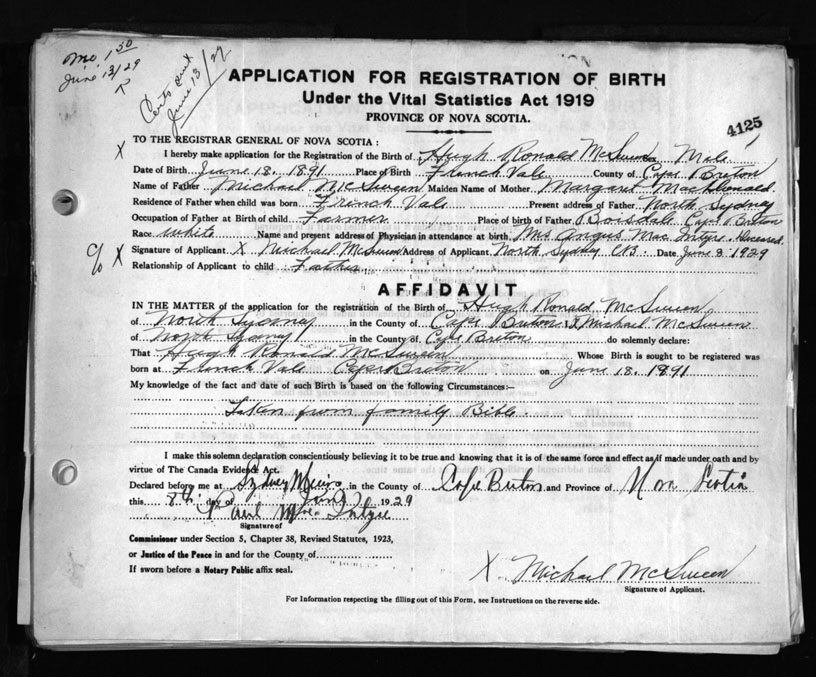 Mo 1.50
June 13/29
Certs sent
June 13/29
APPLICATION FOR REGISTRATION OF BIRTH
Under the Vital Statistics Act 1919
PROVINCE OF NOVA SCOTIA.
4125
X TO THE REGISTRAR GENERAL OF NOVA SCOTIA:
I hereby make application for the Registration of the Birth of Hugh Ronald McSween Sex Male
Date of Birth June 18. 1891 Place of Birth French Vale County of Cape Breton
Name of Father Michael McSween Maiden Name of Mother Margaret MacDonald
Residence of Father when child was born French Vale Present address of Father North Sydney
Occupation of Father at Birth of child Farmer Place of birth of Father Boisdale Cape Breton
Race White Name and present address of Physician in attendance at birth Mrs Angus MacIntyre Deceased
c/o X Signature of Applicant X Michael McSween Address of Applicant North Sydney CB Date June 8 1929
Relationship of Applicant to child Father
AFFIDAVIT
IN THE MATTER of the application for the registration of the Birth of Hugh Ronald McSween
of North Sydney in the County of Cape Breton I Michael McSween
of North Sydney in the County of Cape Breton do solemnly declare:
That Hugh Ronald McSween Whose Birth is sought to be registered was
born at French Vale Cape Breton on June 18. 1891
My knowledge of the fact and date of such Birth is based on the following Circumstances:—
Taken from family Bible.
I make this solemn declaration conscientiously believing it to be true and knowing that it is of the same force and effect as if made under oath and by
virtue of The Canada Evidence Act.
Declared before me at Sydney Mines in the County of Cape Breton and Province of Nova Scotia
this 8th day of June 1929
Mac Intyre
Signature of
Commissioner under Section 5, Chapter 38, Revised Statutes, 1923,
or Justice of the Peace in and for the County of
If sworn before a Notary Public affix seal.
X Michael McSween
Signature of Applicant.
For Information respecting the filling out of this Form, see Instructions on the reverse side.